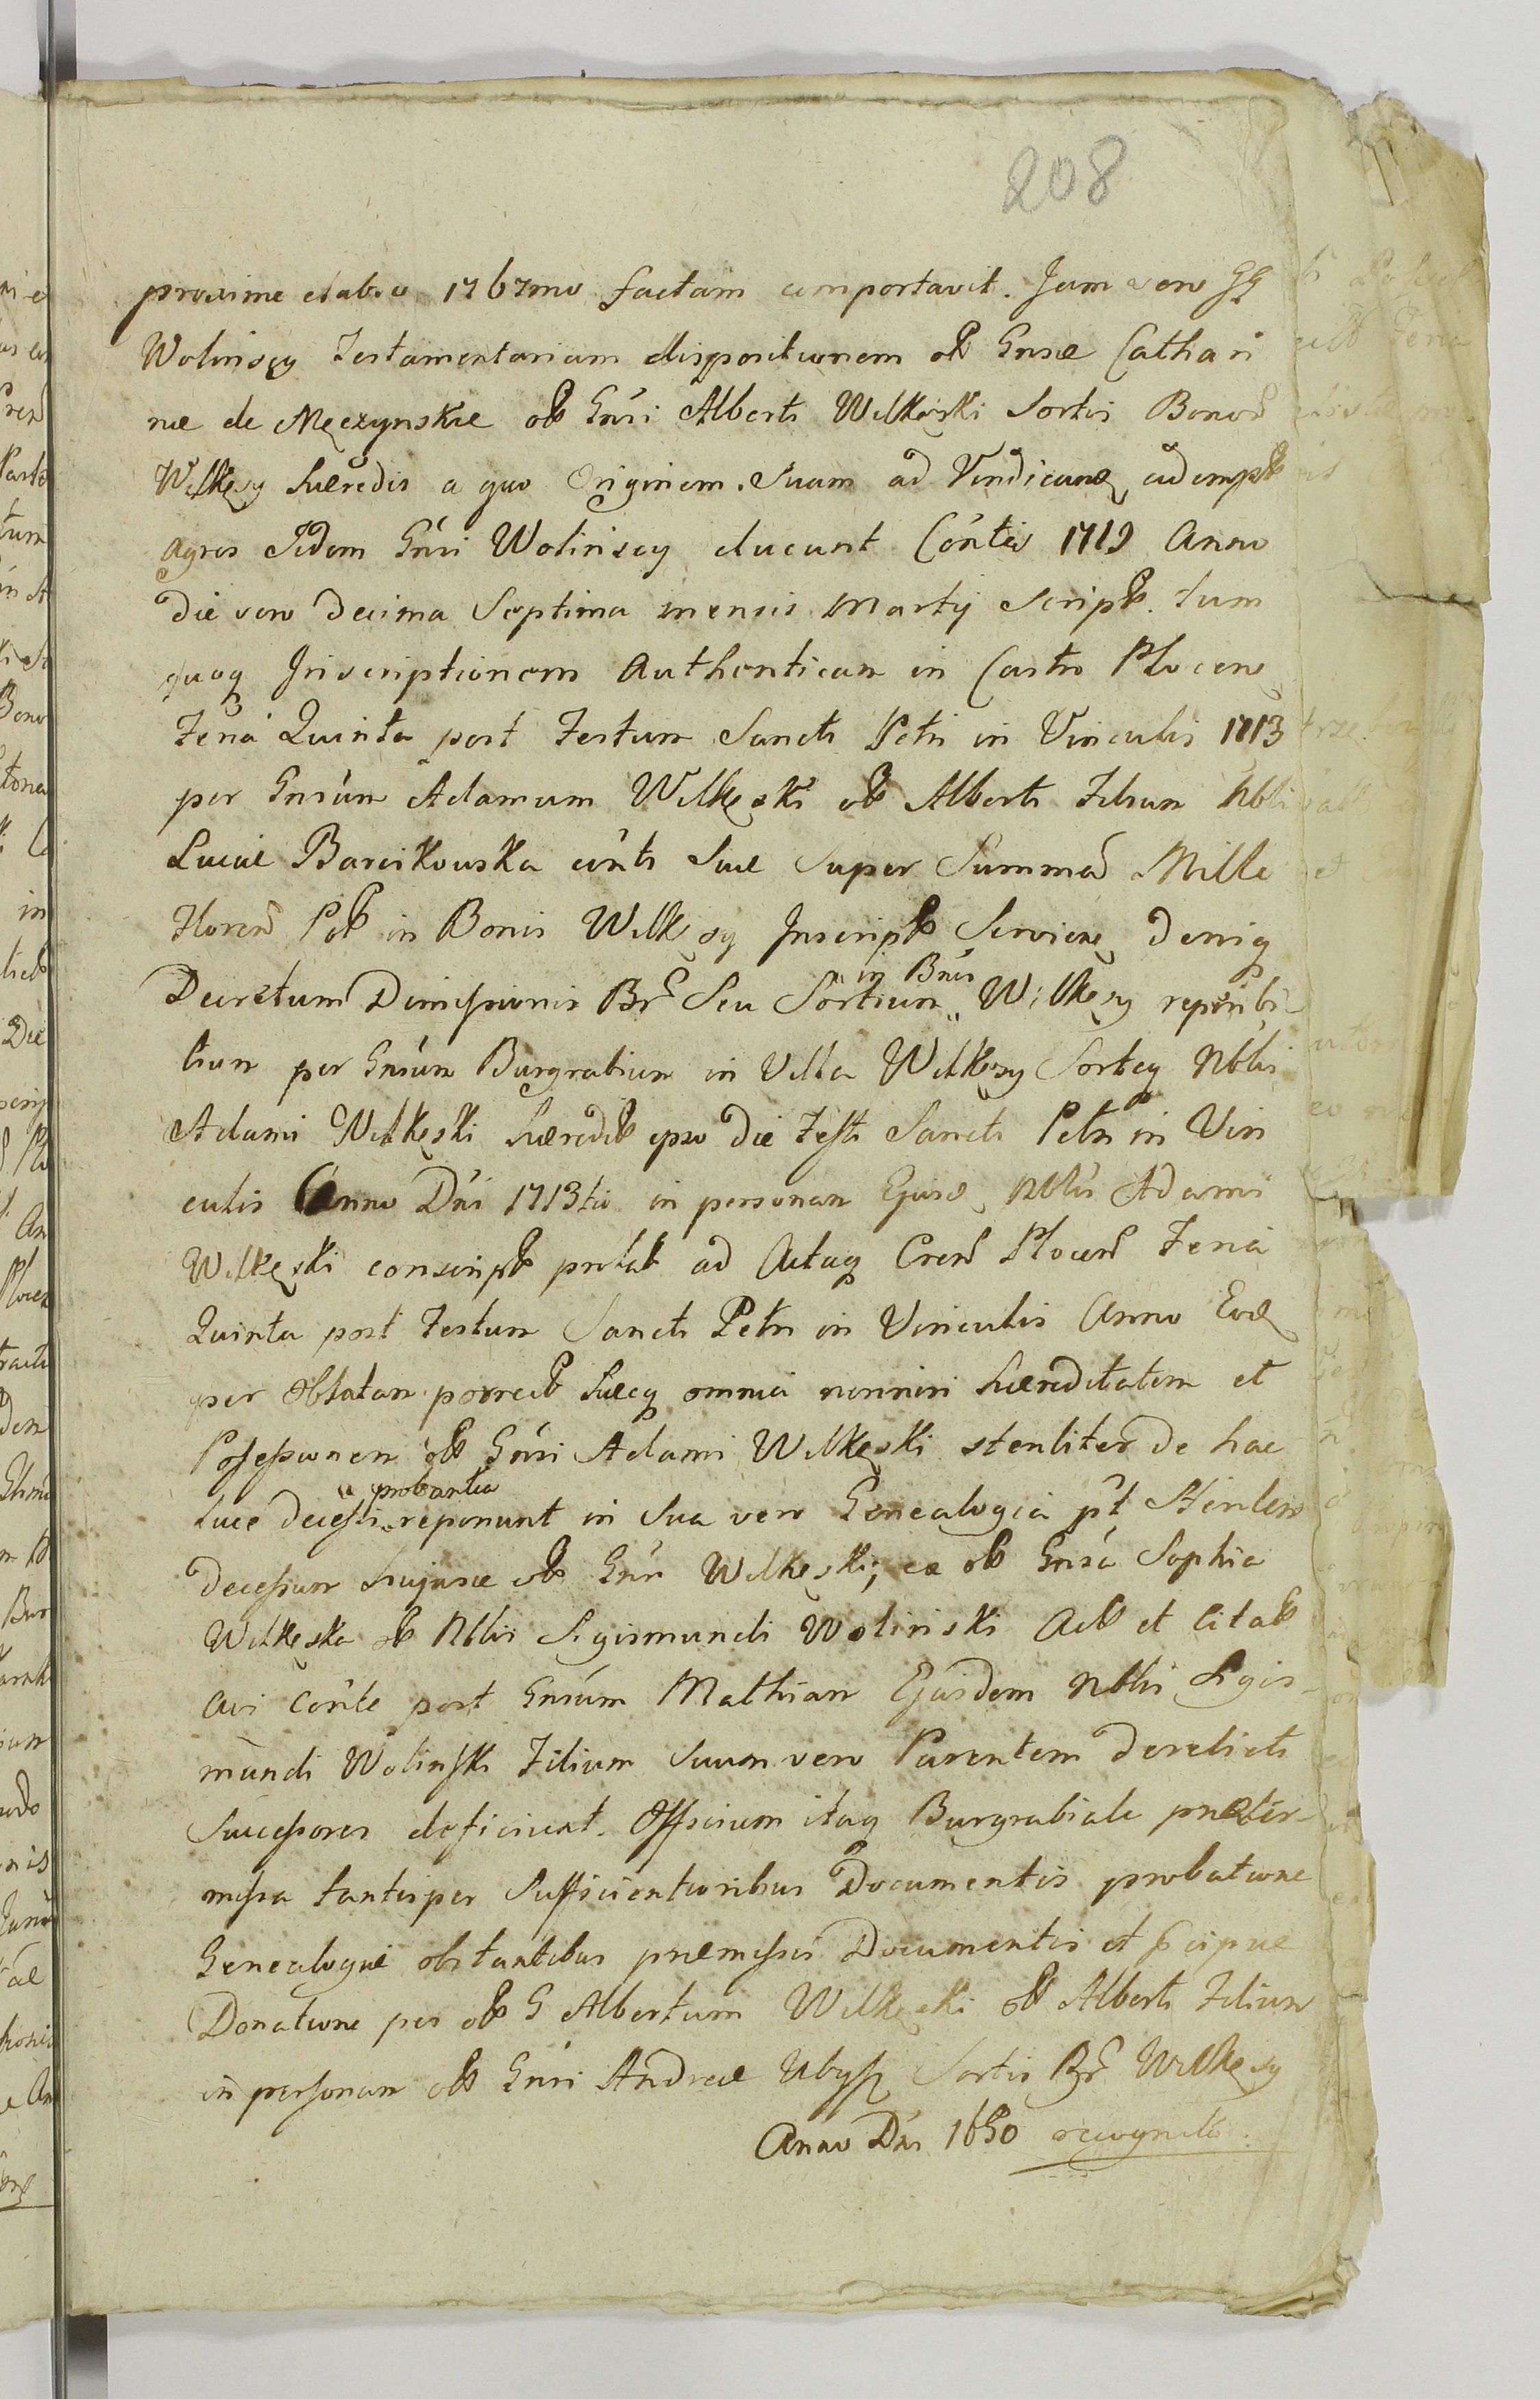 208
proxime elabso 1767mo factam comportavit. Jam vero GG
Wolinscy Testamentariam dispositionem olb Gnsae Cathari
nae de Męczynskie olb Gnsi Alberti Wilkęski Sortis Bonor
Wilkęsy haeredis a quo Originem Suam ad Vindicand adempt
agros Iidem Gnsi Wolinscy ducunt Contis 1719 Anno
die vero decima Septima mensis Martij Script. tum
quoq Inscriptionem Authenticam in Castro Plocen
Feria Quinta post Festum Sancti Petri in Vinculis 1713
per Gnsum Adamum Wilkęski olb Alberti Filium Nbli
Luciae Barcikowska conti suae super Summa Mille
Floren Pol in Bonis Wilkęsy Inscript Servien, deniq
Decretum Dimissionis Br Seu Sortium in Bnis Wilkęsy reperibi-
lium per Gnsum Burgrabium in Villa Wilkęsy Sorteq Nblis
Adami Wilkęski haeredit ipso die Festi Sancti Petri in Vin
culis Anno Dni 1713tio in personam Ejusd Nblis Adami
Wilkęski conscript prolat ad Actaq Cren Plocen Feria
Quinta post Festum Sancti Petri in Vinculis Anno Eod
per Oblatam porrect haecq omnia nonnisi haereditatem et
Possessionem olb Gnsi Adami Wilkęski steriliter de hac
luce decessi probantia reponunt in Sua vero Genealogia pt Sterilem
decessum hujusce olb Gnsi Wilkęski; ex olb Gnsa Sophia
Wilkęska olb Nblis Sigismundi Wolinski Act et Citat
avi conte post Gnsum Mathiam Ejusdem Nblis Sigis-
mundi Wolinski Filium Suum vero Parentem derelicti
Successores deficiunt. Officium itaq Burgrabiale praeter-
missa tantisper Sufficientioribus Documentis probatione
Genealogiae obstantibus praemissis Documentis et pcipue
Donatione per olb G Albertum Wilkęski olb Alberti Filium
in personam olb Gnsi Andreae Ubysz Sortis Br Wilkęsy
Anno Dni 1650 recognito.